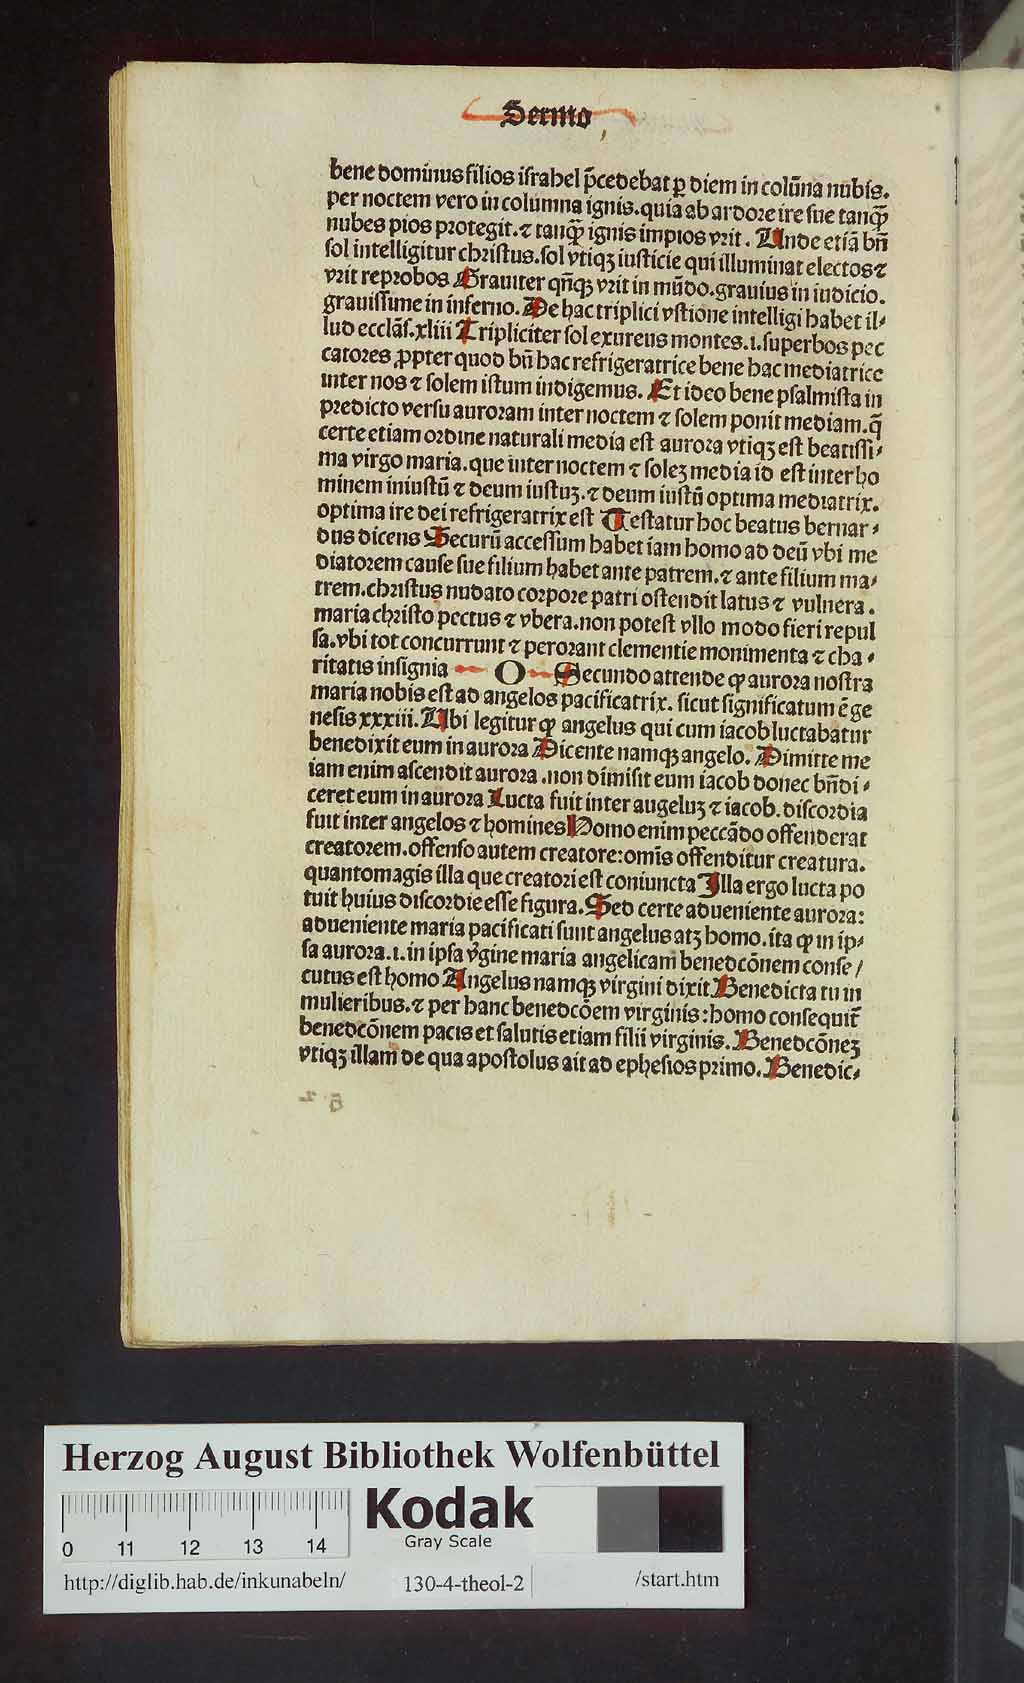 Sermo
bene dominus filios israhel p̄cedebat ꝑ diem in colūna nubis.
per noctem vero in columna ignis. quia ab ardore ire sue tanq̄ꝫ
nubes pios protegit. ⁊ tanq̄ꝫ ignis impios vrit. Unde etiā bn̄
sol intelligitur christus. sol vtiqꝫ iusticie qui illuminat electos ⁊
vrit reprobos Grauiter qn̄qꝫ vrit in mūdo. grauius in iudicio.
grauissime in inferno. De hac triplici vstione intelligi habet il⸗
lud ecclās. xliii Tripliciter sol exureus montes .i. superbos pec
catores ꝓpter quod bn̄ hac refrigeratrice bene hac mediatrice
inter nos ⁊ solem istum indigemus. Et ideo bene psalmista in
predicto versu auroram inter noctem ⁊ solem ponit mediam. q̄
certe etiam ordine naturali media est aurora vtiqꝫ est beatissi⸗
ma virgo maria. que inter noctem ⁊ soleꝫ media id est inter ho
minem iniustū ⁊ deum iustuꝫ. ⁊ deum iustū optima mediatrix.
optima ire dei refrigeratrix est Testatur hoc beatus bernar⸗
dus dicens Securū accessum habet iam homo ad deū vbi me
diatorem cause sue filium habet ante patrem. ⁊ ante filium ma⸗
trem. christus nudato corpore patri ostendit latus ⁊ vulnera.
maria christo pectus ⁊ vbera. non potest vllo modo fieri repul
sa. vbi tot concurrunt ⁊ perorant clementie monimenta ⁊ cha⸗
ritatis insignia O Secundo attende ꝙ aurora nostra
maria nobis est ad angelos pacificatrix. sicut significatum ē ge
nesis xxxiii. Ubi legitur ꝙ angelus qui cum iacob luctabatur
benedixit eum in aurora Dicente namqꝫ angelo. Dimitte me
iam enim ascendit aurora. non dimisit eum iacob donec bn̄di⸗
ceret eum in aurora Lucta fuit inter angeluꝫ ⁊ iacob. discordia
fuit inter angelos ⁊ homines Homo enim peccādo offenderat
creatorem. offenso autem creatore: omīs offenditur creatura.
quantomagis illa que creatori est coniuncta Illa ergo lucta po
tuit huius discordie esse figura. Sed certe adueniente aurora:
adueniente maria pacificati sunt angelus atꝫ homo. ita ꝙ in ip⸗
sa aurora .i. in ipsa v̓gine maria angelicam benedcōnem conse/
cutus est homo Angelus namqꝫ virgini dixit Benedicta tu in
mulieribus. ⁊ per hanc benedcōem virginis: homo consequit̄
benedcōnem pacis et salutis etiam filii virginis. Benedcōneꝫ
vtiqꝫ illam de qua apostolus ait ad ephesios primo. Benedic⸗
Herzog August Bibliothek Wolfenbüttel
Kodak
Gray Scale
0 11 12 13 14
http://diglib.hab.de/inkunabeln/ 130-4-theol-2 /start.htm